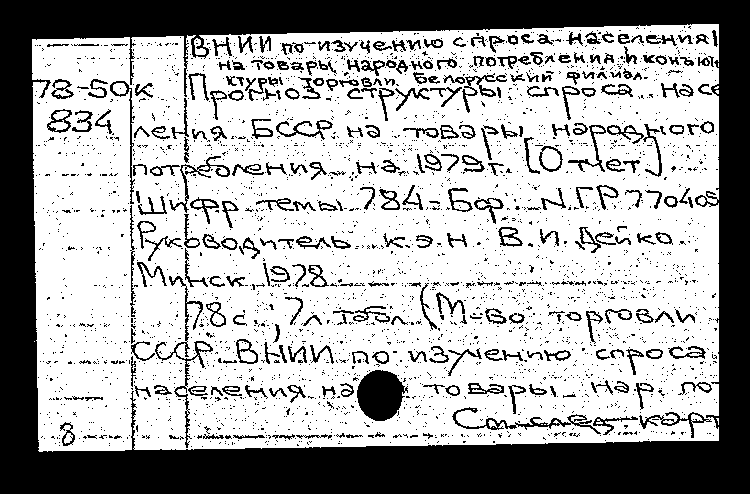 ВНИИ по изучению спроса населения
на товары народного потребления и конъюн
ктуры торговли. Белорусский филиал.
78-50к Прогноз структуры спроса насе
834 ления БССР на товары народного
потребления на 1979г. [Отчет].
Шифр темы 784-Бф. N ГР 770405
Руководитель к.э.н. В.И. Дейко.
Минск, 1978.
78с.; 7л. табл. (М-во торговли
СССР. ВНИИ по изучению спроса
населения на товары нар. пот
См. след. карт
8